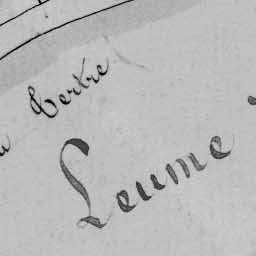 Tertre
Leume